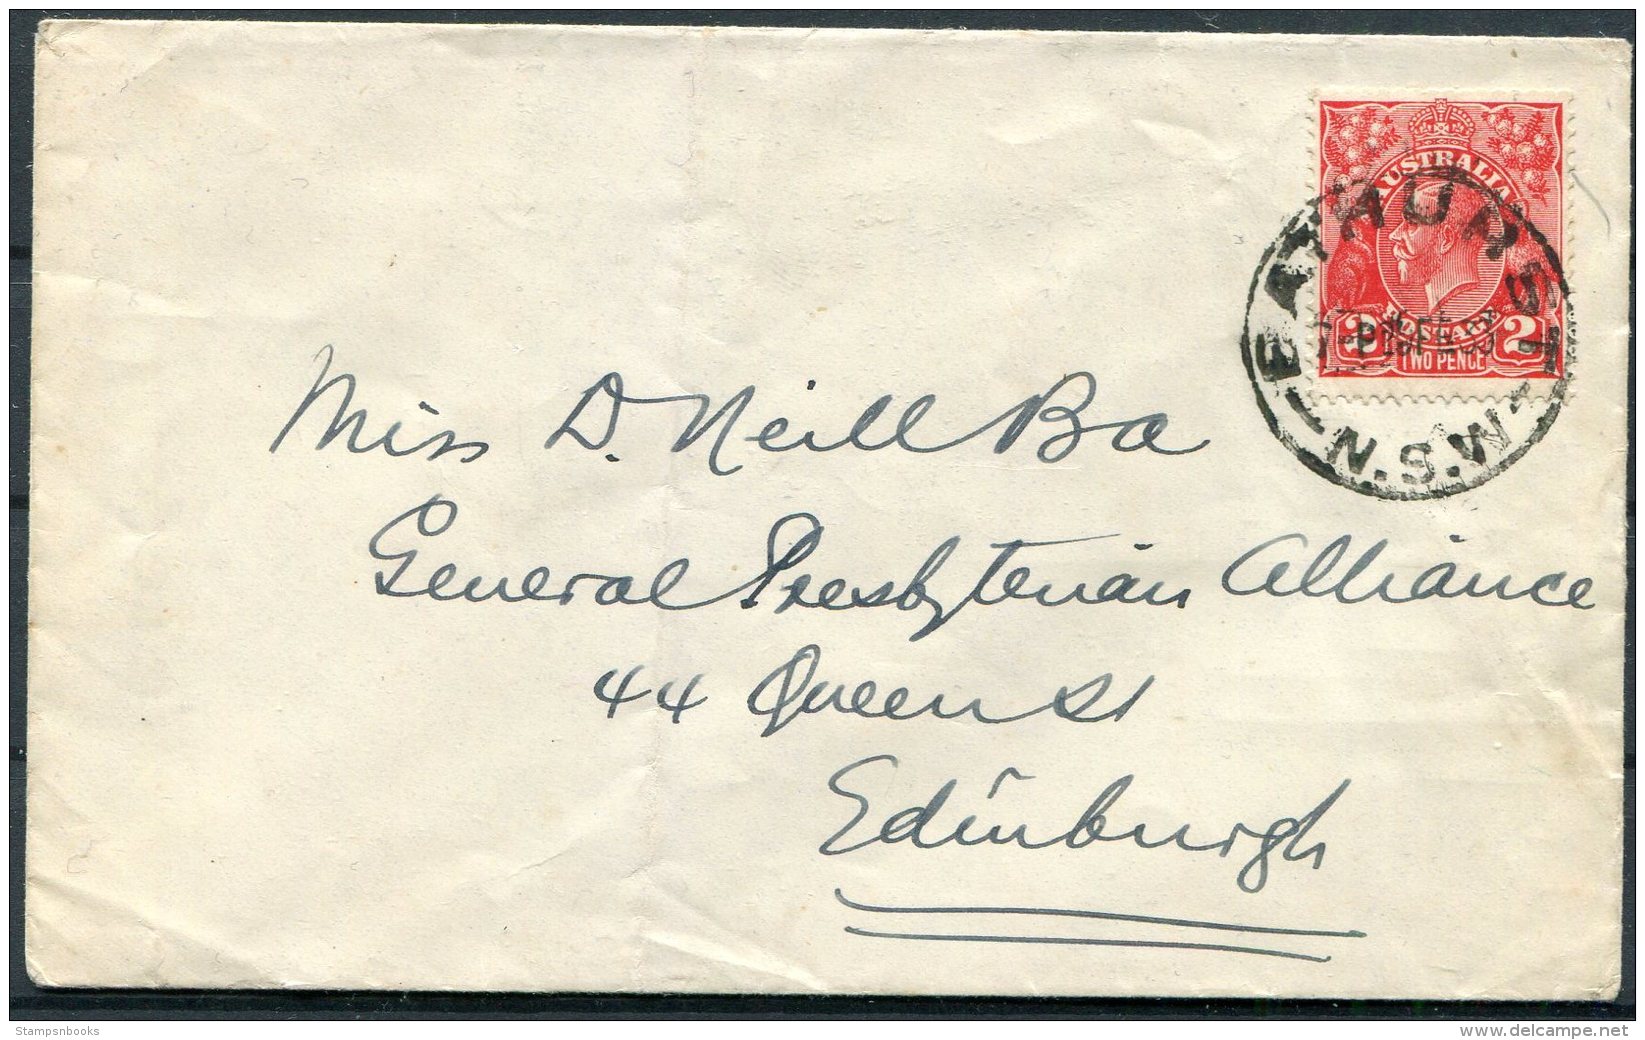 AUSTRALIA
BATHURST
POSTAGE
2 2
TWO PENCE
N.S.W
Miss D. Neill Ba
General Presbyterian Alliance
44 Queen St
Edinburgh
Stampsnbooks
www.delcampe.net